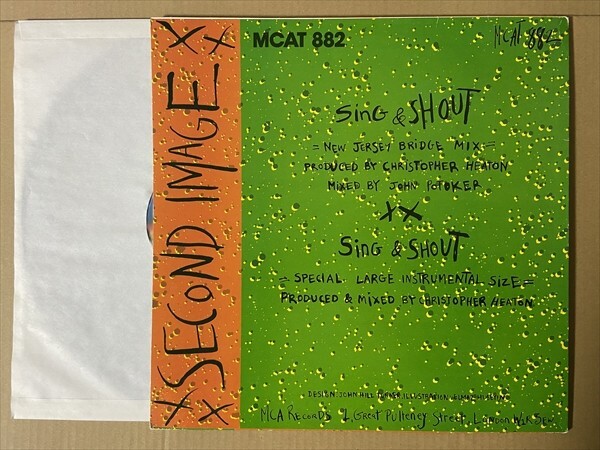 XX SECOND IMAGE XX
MCAT 882
MCAT 882
Sing & SHOUT
= NEW JERSEY BRIDGE MIX =
PRODUCED BY CHRISTOPHER HEATON
MIXED BY JOHN POTOKER
XX
Sing & SHOUT
= SPECIAL LARGE INSTRUMENTAL SIZE =
PRODUCED & MIXED BY CHRISTOPHER HEATON
DESIGN: JOHN HILL ILLUSTRATION
MCA RECORDS 1, Great Pulteney Street, London W1R